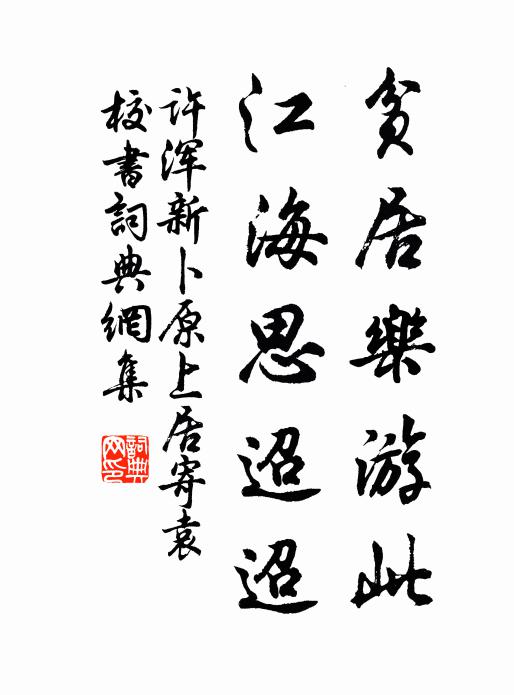 貧居樂游此
江海思迢迢
許渾新卜原上居寄袁
校書詞典網集
詞典
网印